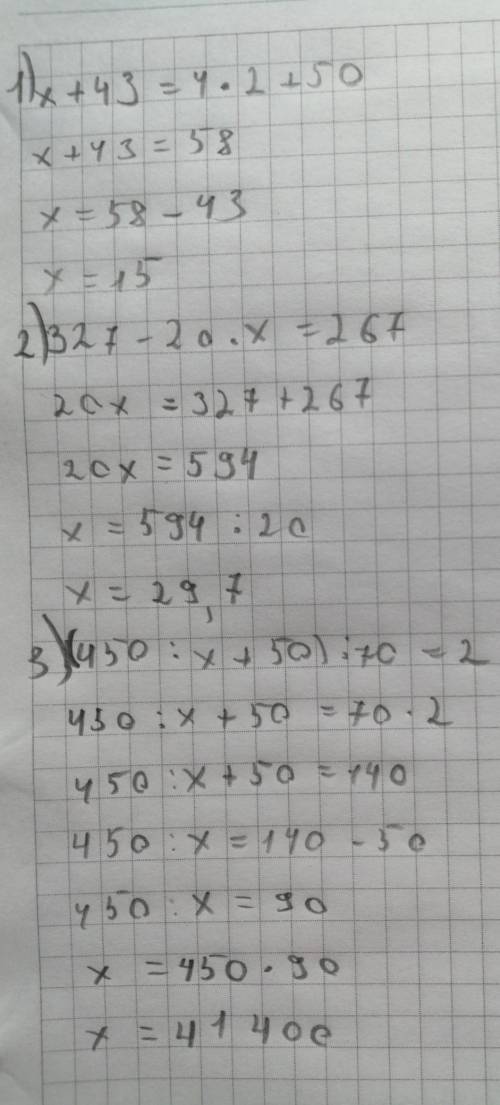 1) x + 43 = 4 · 2 + 50
x + 43 = 58
x = 58 - 43
x = 15
2) 327 - 20 · x = 267
20x = 327 + 267
20x = 594
x = 594 : 20
x = 29,7
3) (450 : x + 50) : 70 = 2
450 : x + 50 = 70 · 2
450 : x + 50 = 140
450 : x = 140 - 50
450 : x = 90
x = 450 · 90
x = 41400